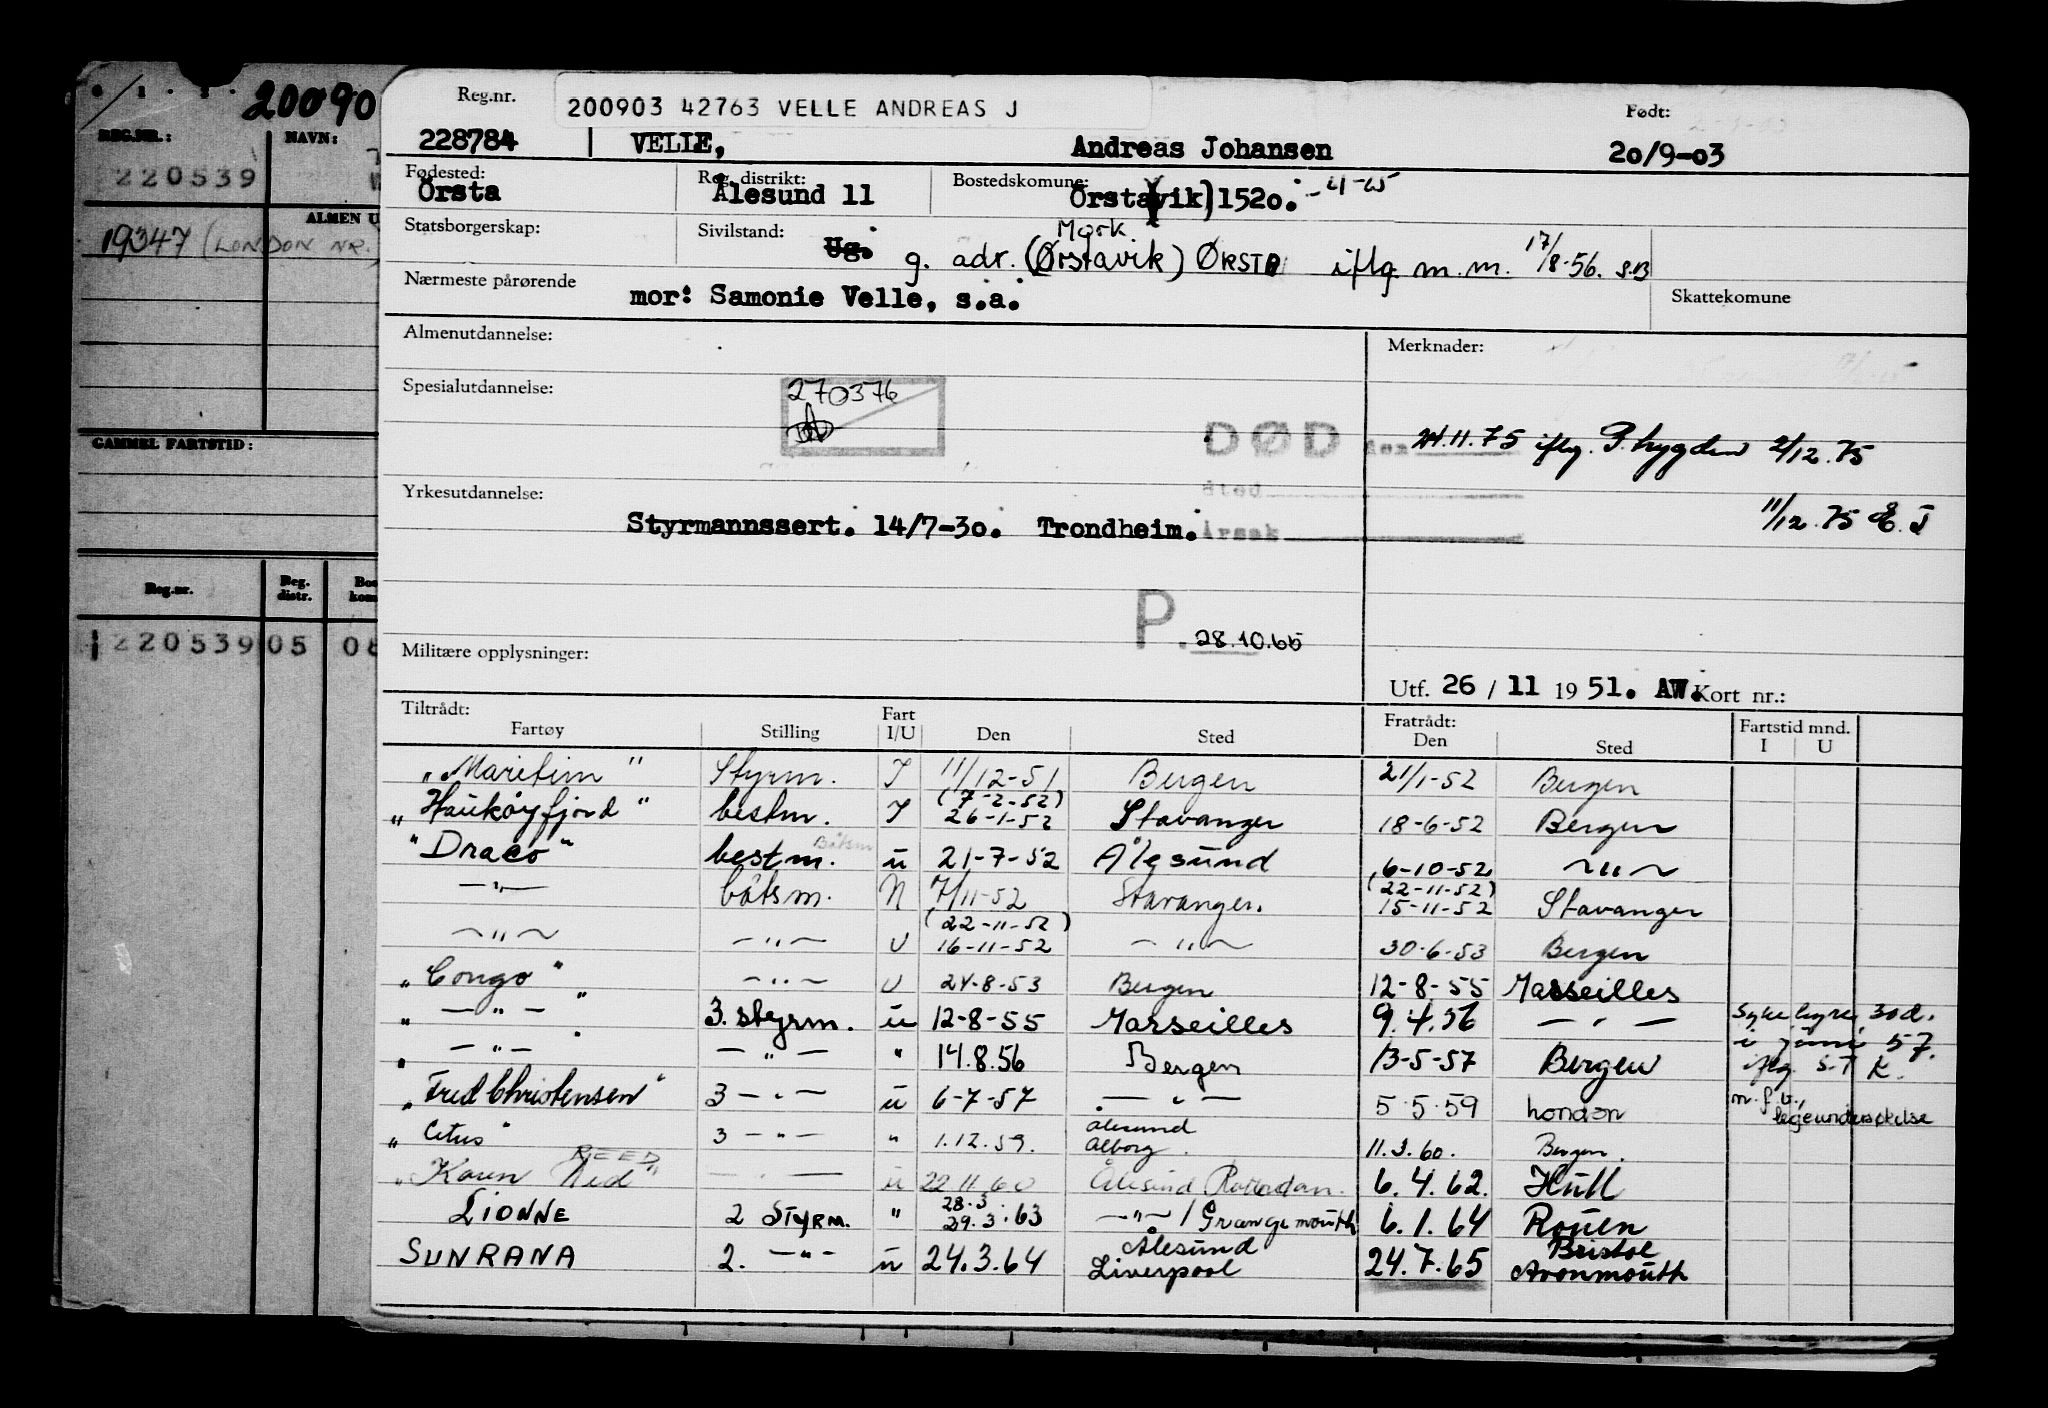 20090
REG.NR.: NAVN:
220539
ALMEN U
19347 (LONDON NR.)
GAMMEL FARTSTID:
Reg.nr. Reg. distr. Bos kom
220539 05 08
Reg.nr. 200903 42763 VELLE ANDREAS J Født:
228784 VELLE, Andreas Johansen 20/9-03
Fødested: Reg. distrikt: Bostedskommune:
Örsta Ålesund 11 Örstavik) 1520.
Statsborgerskap: Sivilstand: Ug. g. adr. (Ørstavik) ØRSTA iflg. m.m. 17/8-56. S.B
Mork
Nærmeste pårørende Skattekomune
mor: Samonie Velle, s.a.
Almenutdannelse: Merknader:
Spesialutdannelse: 270376
DØD den 24.11.75 iflg. P. trygden 2/12.75
Sted
Yrkesutdannelse: 11/12.75 E.J
Styrmannssert. 14/7-30. Trondheim. Årsak
P. 28.10.65
Militære opplysninger:
Utf. 26 / 11 19 51. AW. Kort nr.:
Tiltrådt: Fratrådt: Fartstid mnd.
Fartøy Stilling Fart I/U Den Sted Den Sted I U
"Maritim" Styrm. I 11/12-51 Bergen 21/1-52 Bergen
(7-2-52)
"Haukøyfjord" bestm. I 26-1-52 Stavanger 18-6-52 Bergen
"Draco" bestm. Båtsm u 21-7-52 Ålesund 6-10-52 ~"~
—"— båtsm. N 7/11-52 Stavanger. (22-11-52) 15-11-52 Stavanger
(22-11-52)
~"~ —"— U 16-11-52 —"— 30-6-53 Bergen
"Congo" —"— U 24-8-53 Bergen 12-8-55 Marseilles
" —"— " 3. styrm. u 12-8-55 Marseilles 9.4.56 —"— Sykehyre, 30d.
" —"— " —"— " 14.8.56 Bergen 13-5-57 Bergen i juni 57.
iflg. S.T K.
"Fred Christensen" 3 —"— u 6-7-57 —"— 5.5.59 London m.f.u., legeundersøkelse
"Cetus" 3 —"— " 1.12.59. Ålesund Ålborg 11.3.60. Bergen.
"Karen Reed" REED —"— u 22 11 60 Ålesund Rotterdam. 6.4.62. Hull
LIONNE 2 STYRM. " 28.3 29.3.63 —"— / Grangemouth 6.1.64 Rouen
SUNRANA 2. —"— u 24.3.64 Ålesund Liverpool 24.7.65 Bristol Avonmouth